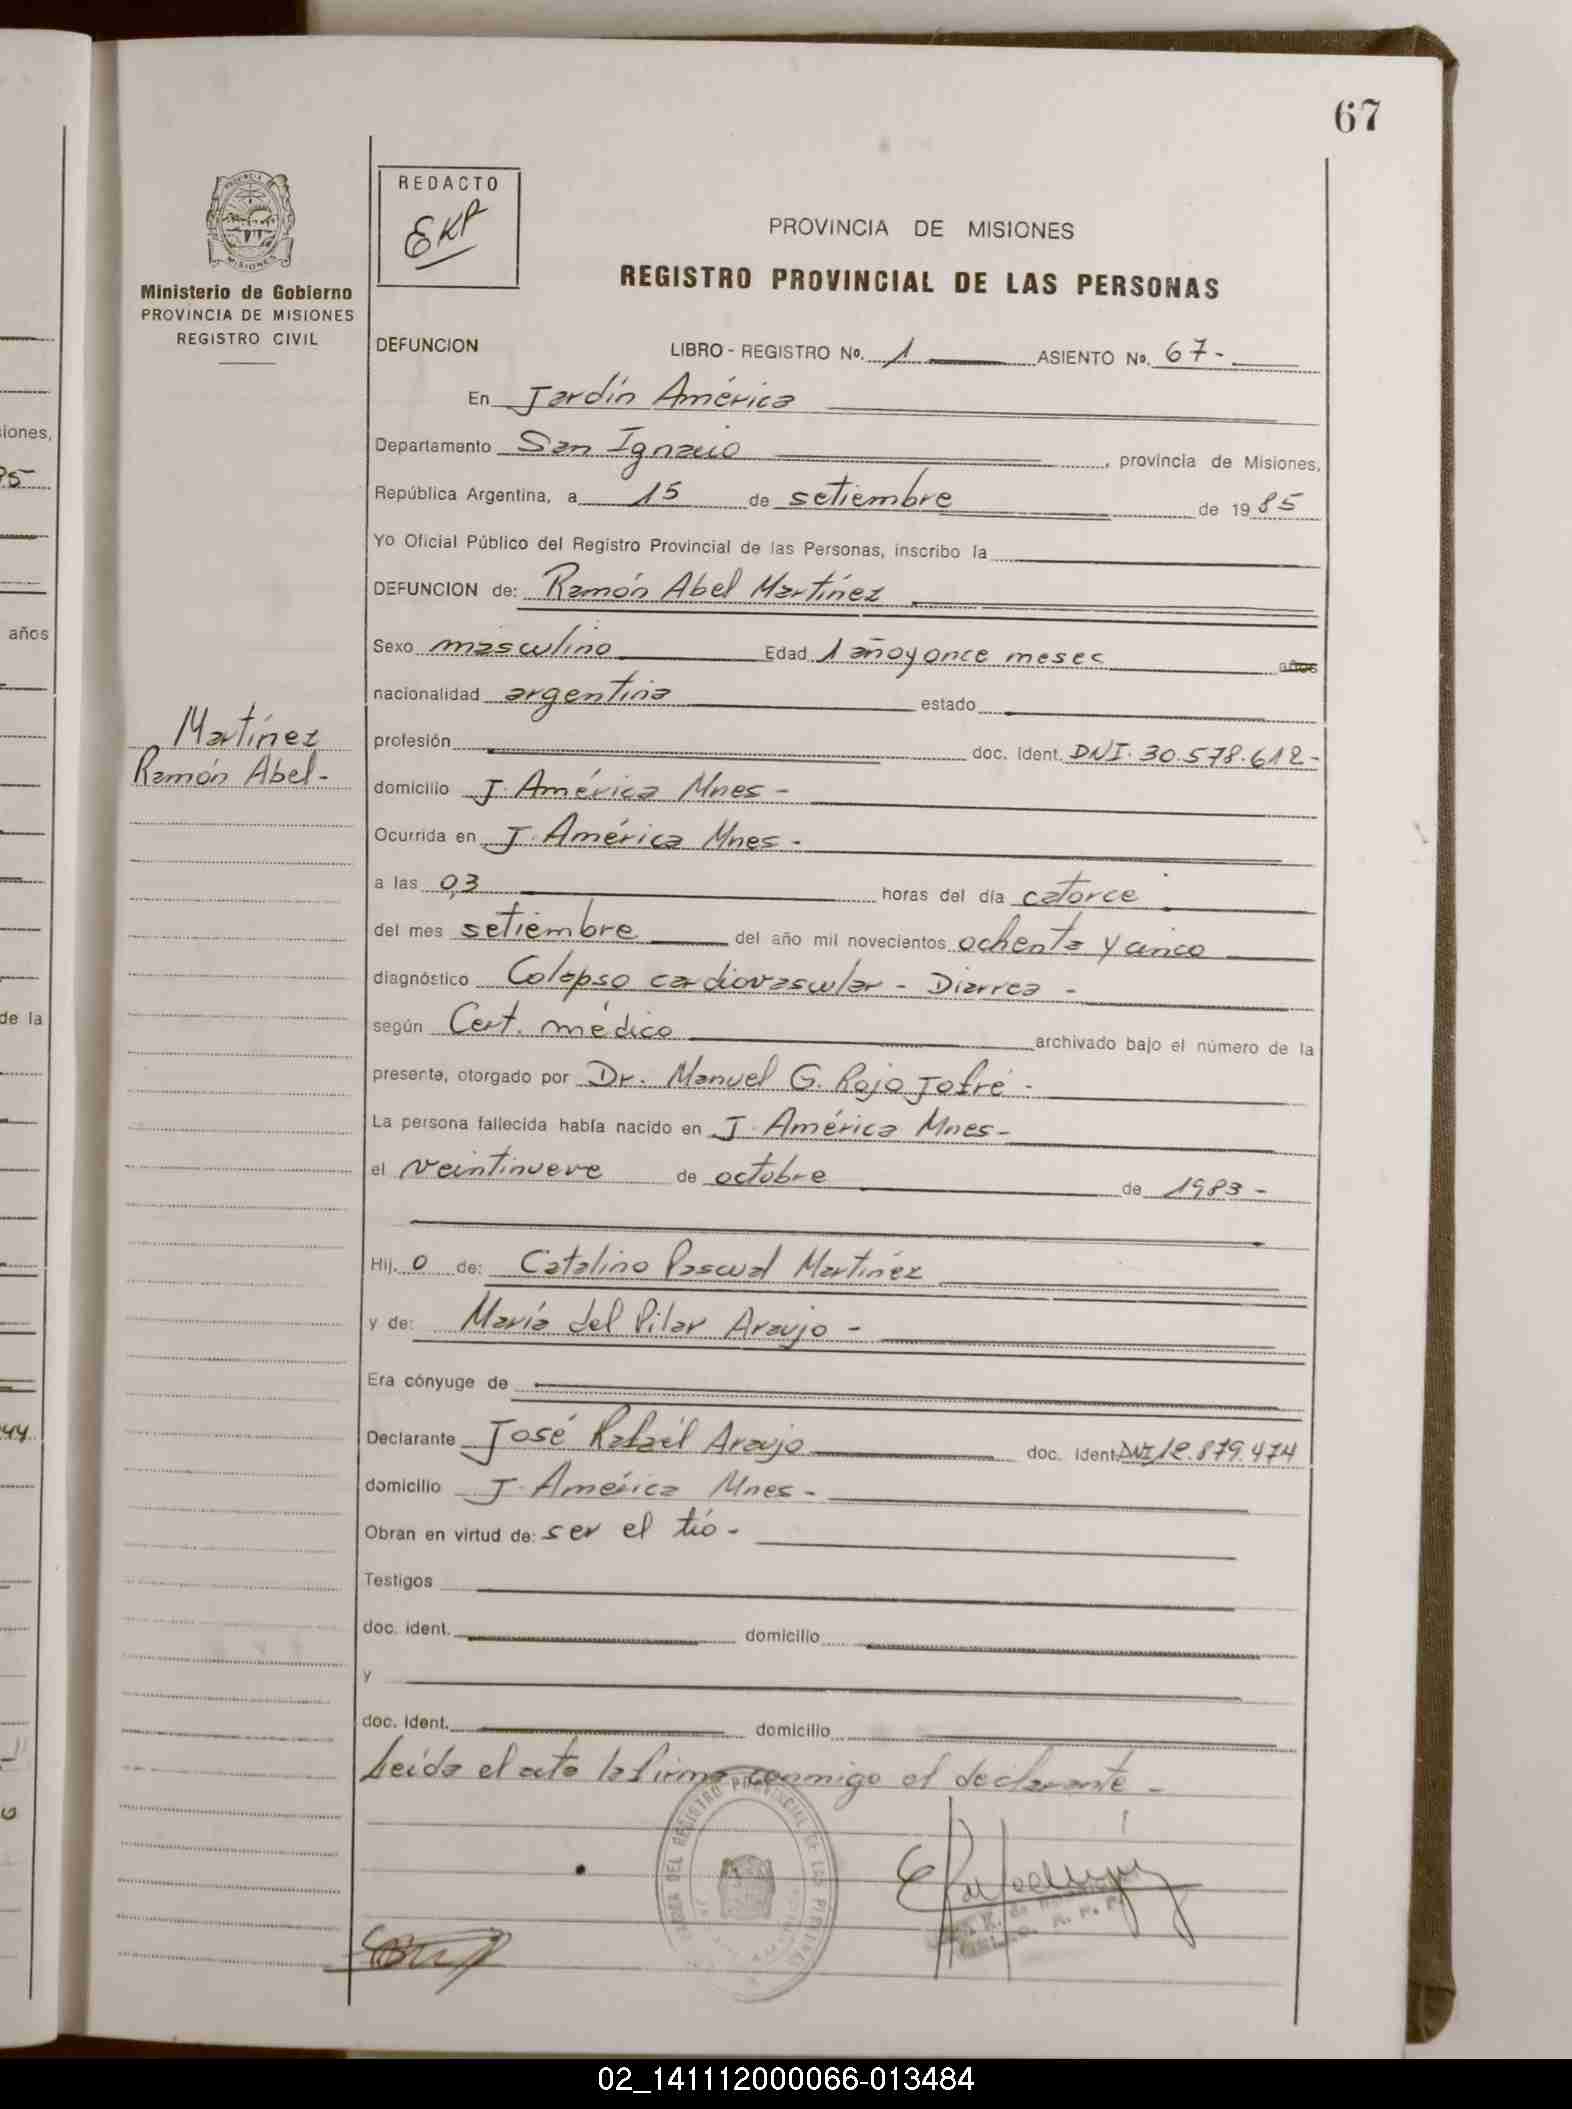 67
REDACTO
EKP
PROVINCIA DE MISIONES
REGISTRO PROVINCIAL DE LAS PERSONAS
PROVINCIA DE
MISIONES
Ministerio de Gobierno
PROVINCIA DE MISIONES
REGISTRO CIVIL
DEFUNCION LIBRO - REGISTRO Nº. 1 ASIENTO Nº. 67-
En Jardín América
Departamento San Ignacio , provincia de Misiones,
República Argentina, a 15 de setiembre de 1985
Yo Oficial Público del Registro Provincial de las Personas, inscribo la
DEFUNCION de: Ramón Abel Martínez
Sexo masculino Edad 1 año y once meses años
nacionalidad argentina estado
Martínez
Ramón Abel-
profesión doc. ident. DNI. 30.578.612-
domicilio J. América Mnes-
Ocurrida en J. América Mnes-
a las 0,3 horas del día catorce
del mes setiembre del año mil novecientos ochenta y cinco
diagnóstico Colapso cardiovascular - Diarrea -
según Cert. médico archivado bajo el número de la
presente, otorgado por Dr. Manuel G. Rojo Jofré-
La persona fallecida había nacido en J. América Mnes-
el veintinueve de octubre de 1983-
Hij. o de: Catalino Pascual Martínez
y de: María del Pilar Araujo -
Era cónyuge de
Declarante José Rafaél Araujo doc. ident. DNI 12.879.474
domicilio J. América Mnes-
Obran en virtud de: ser el tío-
Testigos
doc. ident. domicilio
y
doc. ident. domicilio
Leída el acta la firma conmigo el declarante-
DEL REGISTRO PROVINCIAL DE LAS PERSONAS
iones,
años
de la
02_141112000066-013484